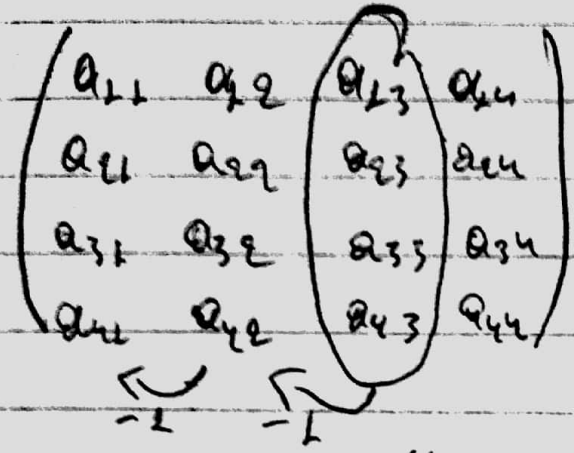 a11 a12 a13 a14
a21 a22 a23 a24
a31 a32 a33 a34
a41 a42 a43 a44
-1 -1